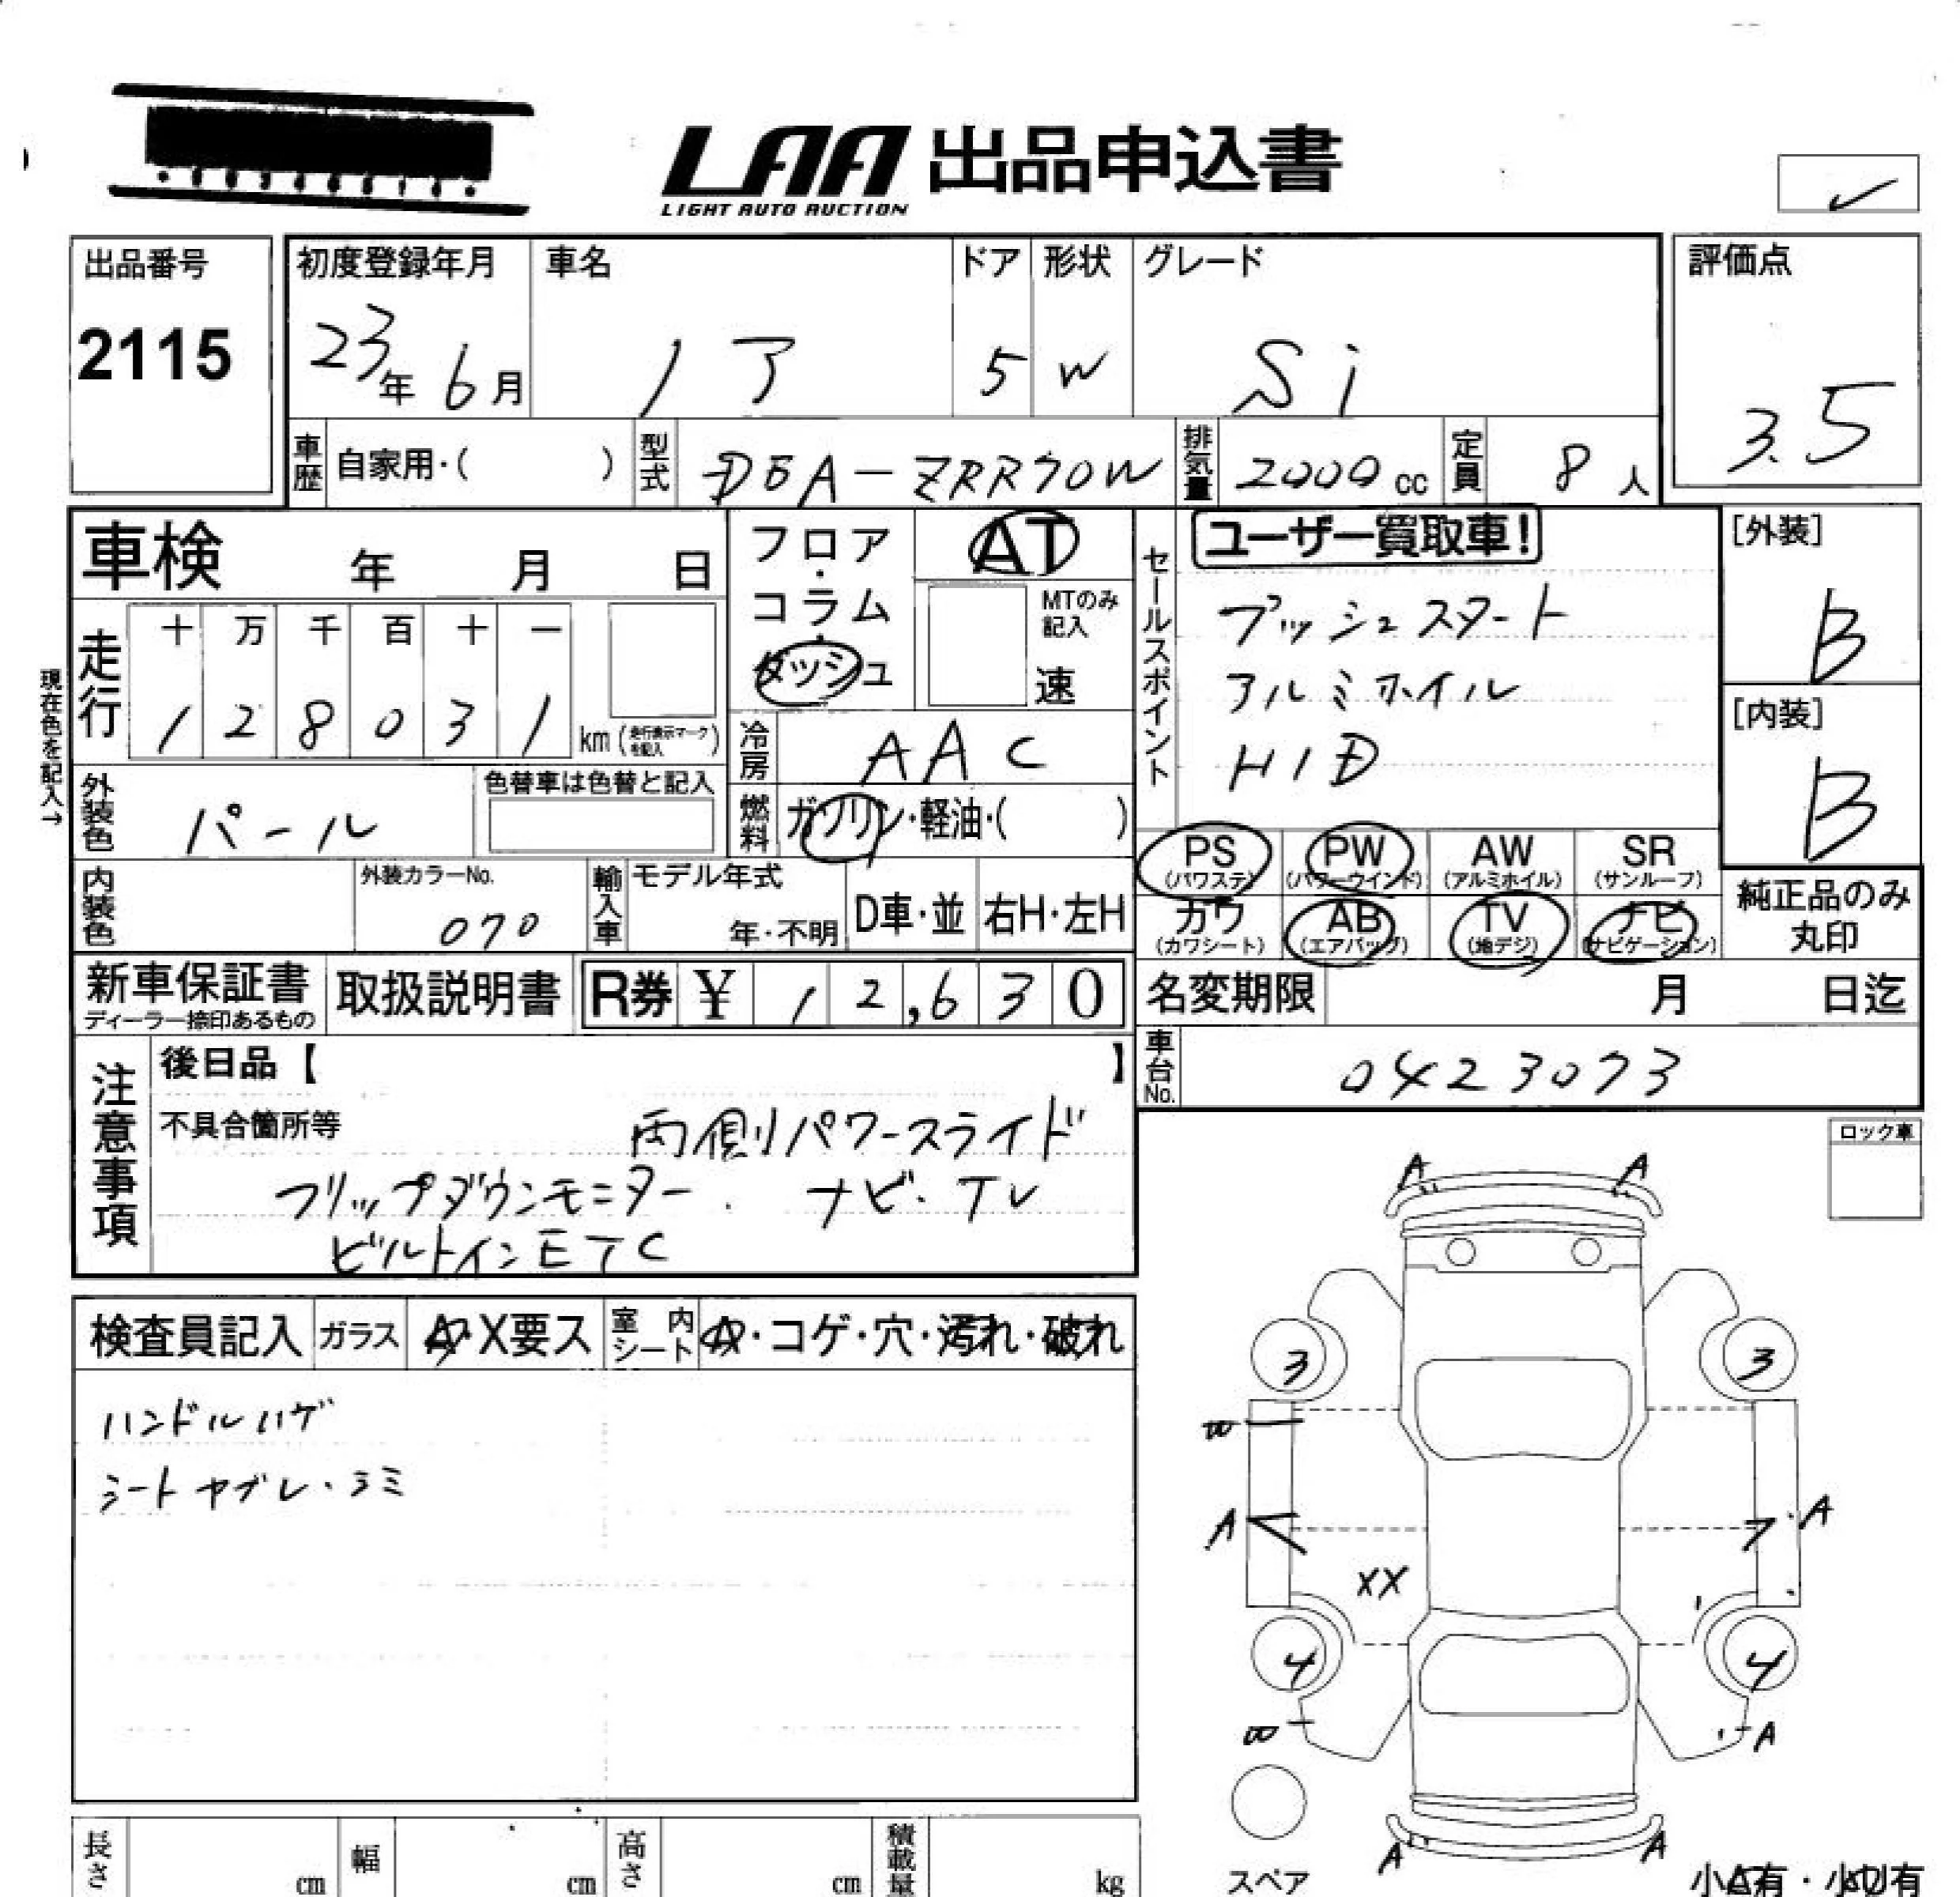 LAA 出品申込書
LIGHT AUTO AUCTION
出品番号
2115
初度登録年月
23年 6月
車名
ノア
ドア
5
形状
W
グレード
Si
評価点
3.5
車歴 自家用・( )
型式 DBA-ZRR70W
排気量 2000 cc
定員 8 人
車検 年 月 日
現在色を記入→
走行
十 万 千 百 十 一
1 2 8 0 3 1 km (走行表示マークを記入)
フロア・コラム・ダッシュ
AT
MTのみ記入
速
冷房 AAC
燃料 ガソリン・軽油・( )
外装色 パール
色替車は色替と記入
内装色
外装カラーNo.
070
輸入車 モデル年式
年・不明
D車・並 右H・左H
セールスポイント
ユーザー買取車!
プッシュスタート
アルミホイル
HID
[外装]
B
[内装]
B
PS (パワステ) PW (パワーウインド) AW (アルミホイル) SR (サンルーフ)
カワ (カワシート) AB (エアバッグ) TV (地デジ) ナビ (ナビゲーション)
純正品のみ丸印
新車保証書
ディーラー捺印あるもの
取扱説明書
R券 ¥ 12,630
名変期限 月 日迄
車台No. 0423073
注意事項
後日品【 】
不具合箇所等
両側パワースライド
フリップダウンモニター. ナビ・TV
ビルトインETC
ロック車
検査員記入 ガラス A・X要ス 室内シート A・コゲ・穴・汚れ・破れ
ハンドルハゲ
シートヤブレ・シミ
A A
3 3
W
A A
XX
4 4
W A
A A
スペア
小A有・小U有
長さ cm 幅 cm 高さ cm 積載量 kg